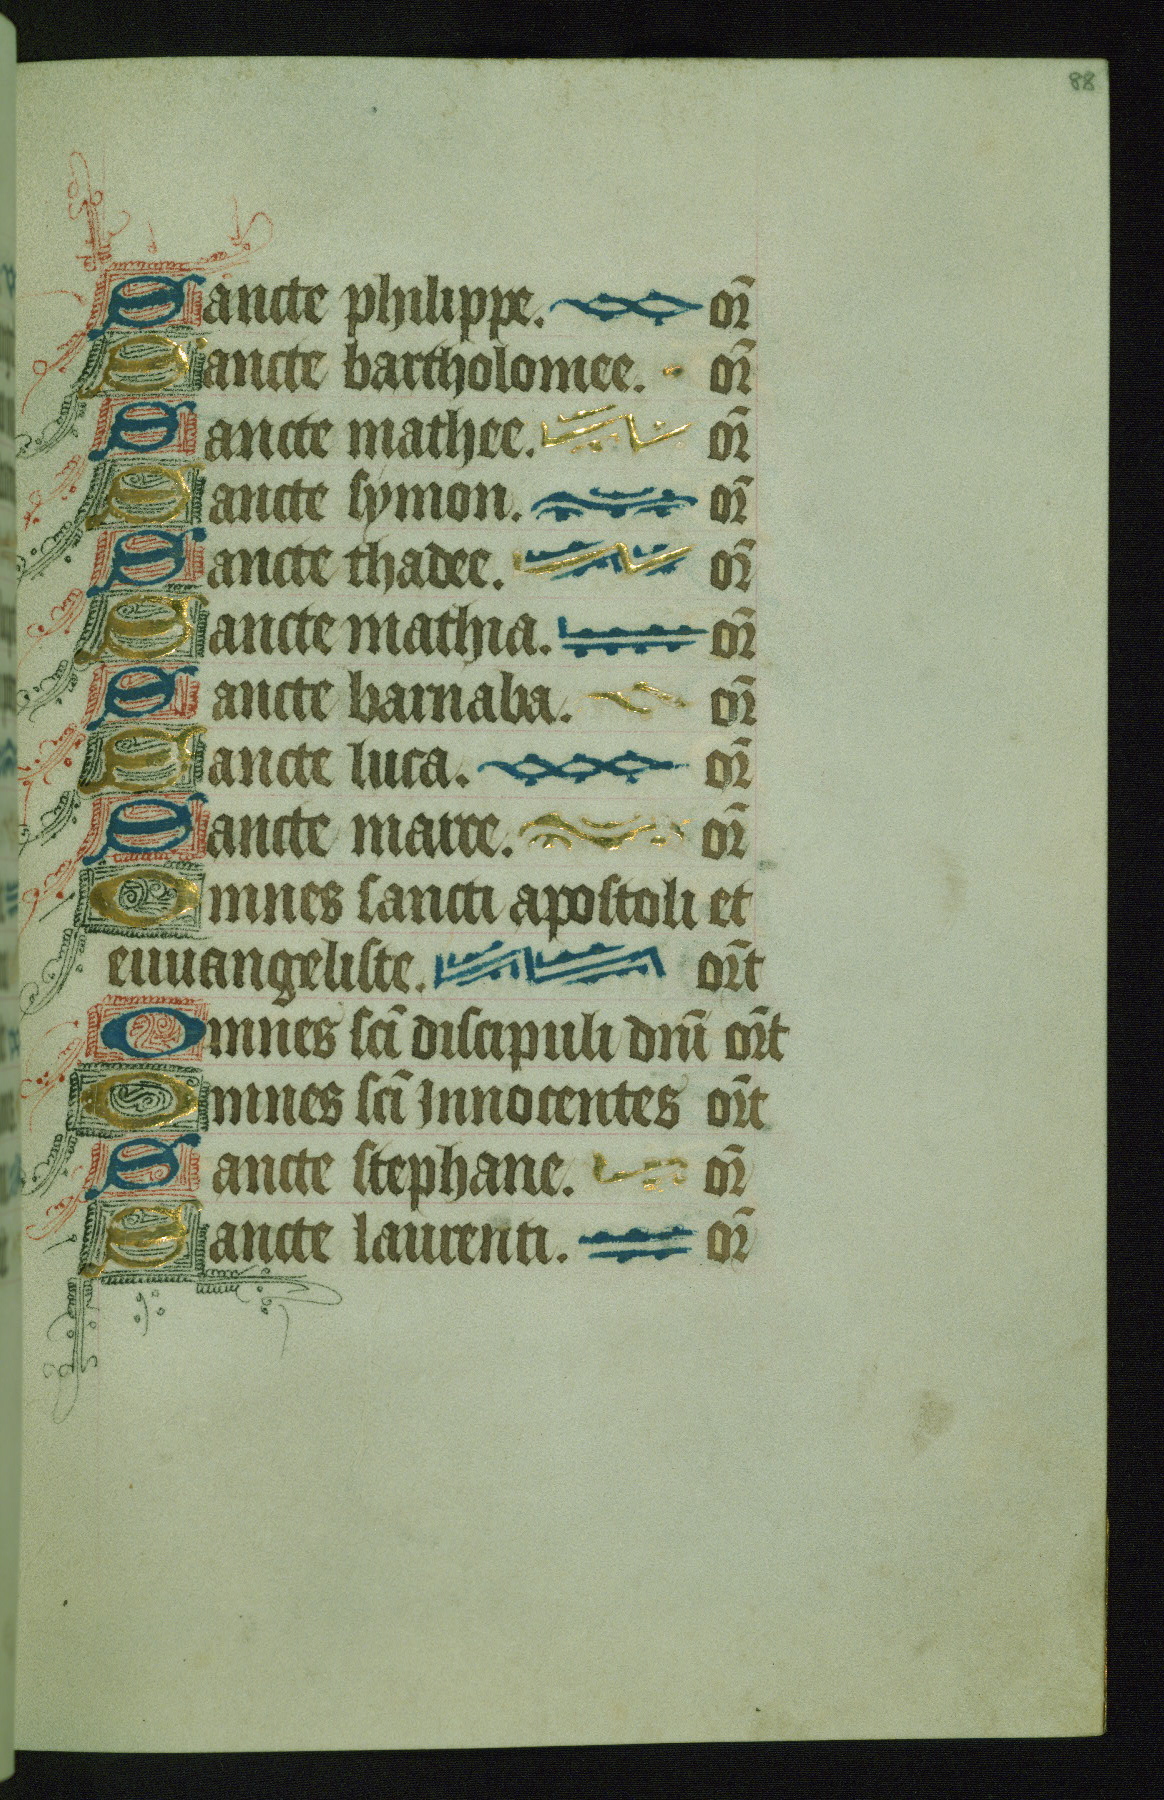 88
Sancte philippe. or̄
Sancte bartholomee. or̄
Sancte mathee. or̄
Sancte symon. or̄
Sancte thadee. or̄
Sancte mathia. or̄
Sancte barnaba. or̄
Sancte luca. or̄
Sancte marce. or̄
Omnes sancti apostoli et
euuangeliste. or̄t
Omnes scī discipuli dnī or̄t
Omnes scī Innocentes or̄t
Sancte stephane. or̄
Sancte laurenti. or̄